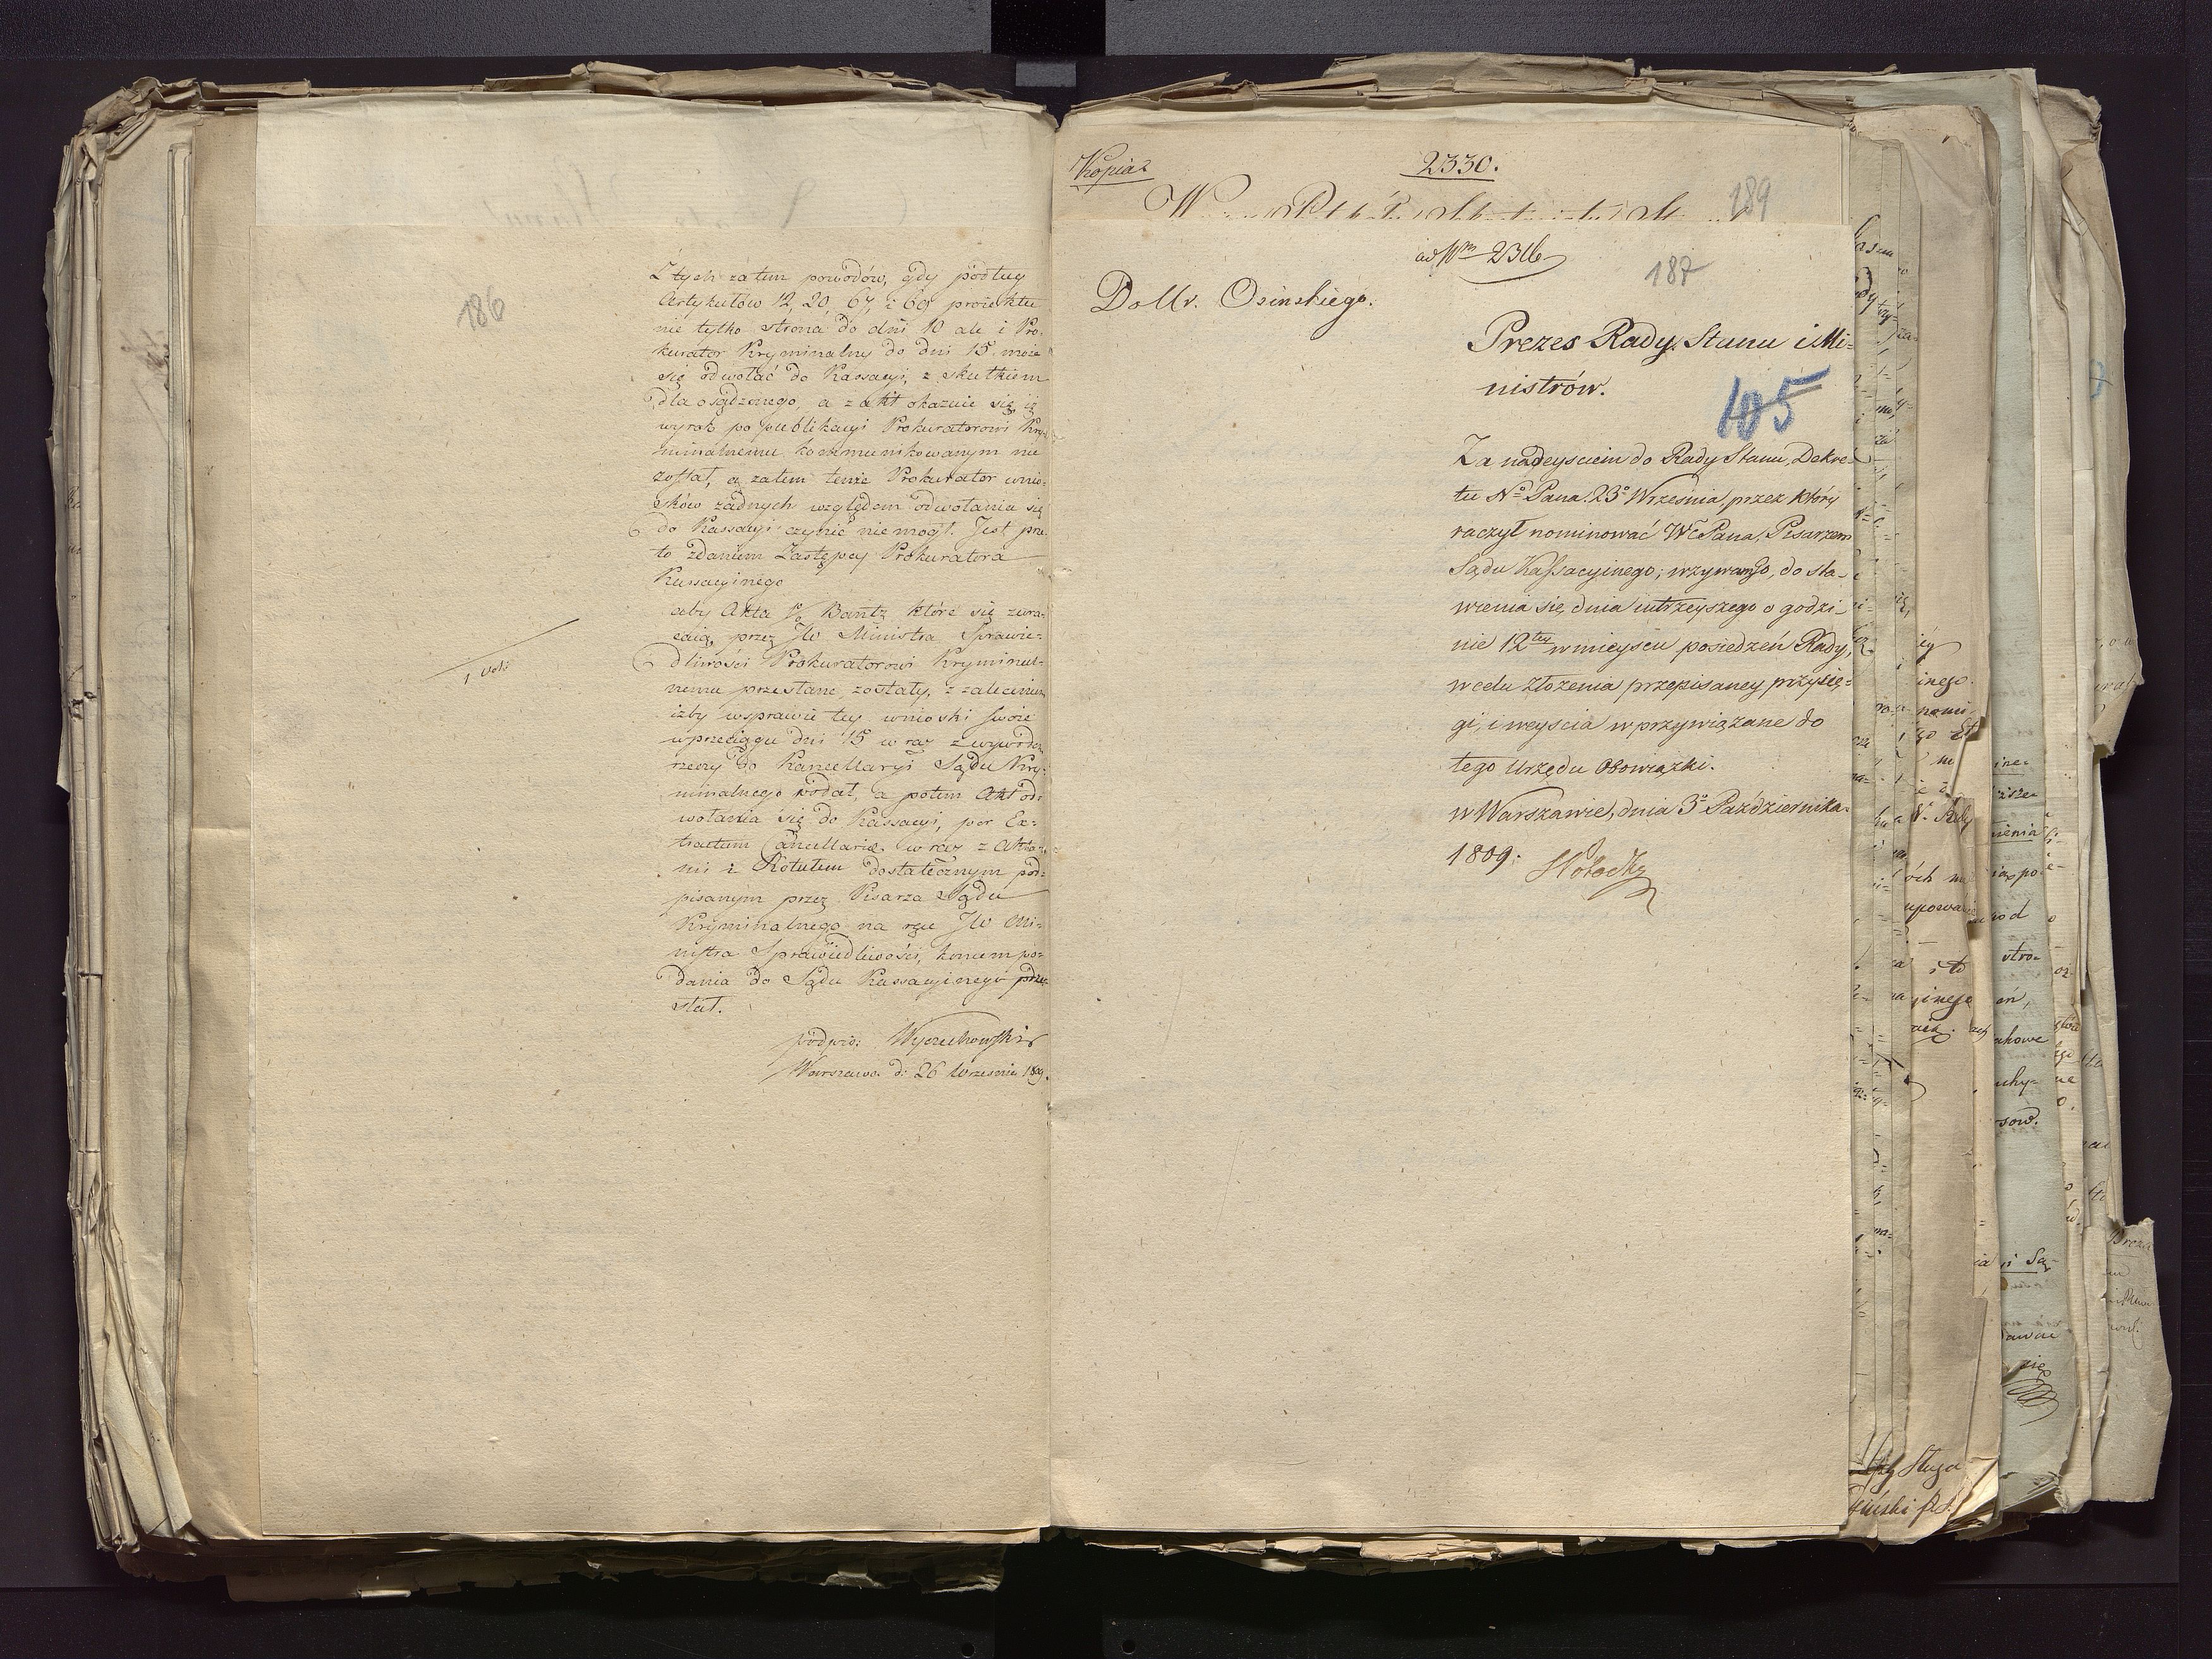 186
Z tych zatem powodów, gdy podług
Artykułów 12, 20, 67, i 69 proiektu
nie tylko strona do dni 10 ale i Pro-
kurator Kryminalny do dni 15. może
się odwołać do Kassacyi, z skutkiem
dla osądzonego, a z akt okazuie się, iż
wyrok po publikacyi Prokuratorowi Kry-
minalnemu kommunikowanym nie
został, a zatem tenże Prokurator wnio-
sków żadnych względem odwołania się
do Kassacyi czynić nie mógł. Jest prze-
to zdaniem Zastępcy Prokuratora
Kassacyinego
aby Akta Bantz które się zwra-
caią, przez JW Ministra Sprawie-
dliwości Prokuratorowi Kryminal-
nemu przesłane zostały, z zaleceniem
iżby w sprawie tey wnioski swoie
w przeciągu dni 15 wraz z wywodem
rzeczy do Kancellaryi Sądu Kry-
minalnego podał, a potem Akt od-
wołania się do Kassacyi, per Ex-
tractum Cancellariae wraz z Akta-
mi i Rotułem dostatecznym pod-
pisanym przez Pisarza Sądu
Kryminalnego na ręce JW Mi-
nistra Sprawiedliwości, końcem po-
dania do Sądu Kassacyinego prze-
słał.
podpis: Wyczechowski
Warszawa d: 26 Września 1809.
Kopia
2330.
189
ad Nm 2316
187
Do Ur. Osinskiego.
Prezes Rady Stanu i Mi-
nistrów.
105
Za nadeysciem do Rady Stanu, Dekre-
tu No Pana 23o Września, przez który
raczył nominować WcPana, Pisarzem
Sądu Kassacyinego; wzywam Go, do sta-
wienia się, dnia iutrzeyszego o godzi-
nie 12tey w mieyscu posiedzeń Rady,
w celu złożenia przepisaney przysię-
gi, i weyscia w przywiązane do
tego Urzędu Obowiązki.
w Warszawie, dnia 3o Października
1809.